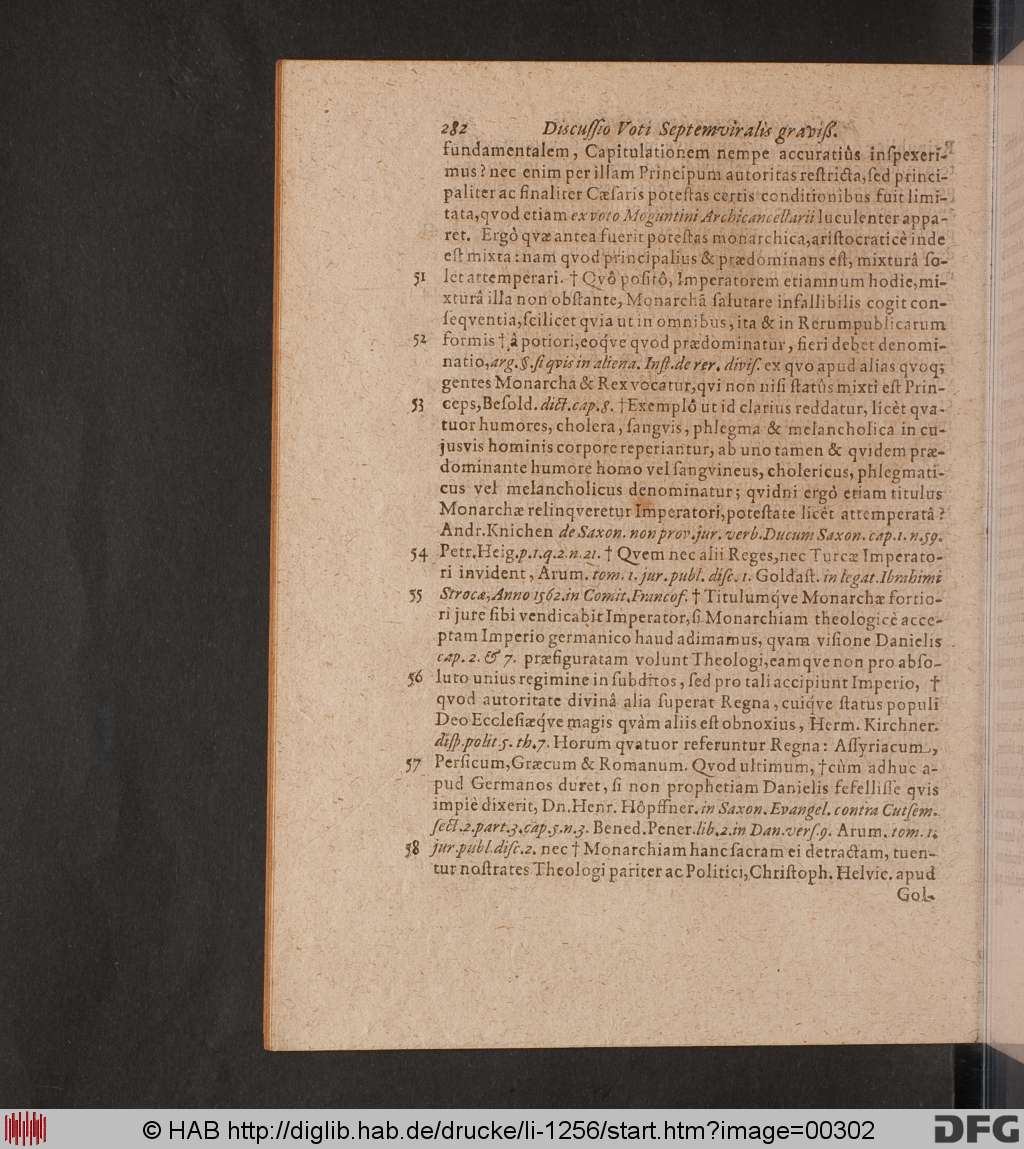 282 Discuſſio Voti Septemviralis graviß.
fundamentalem, Capitulationem nempe accuratiùs inſpexeri-
mus? nec enim per illam Principum autoritas reſtricta, ſed princi-
paliter ac finaliter Cæſaris poteſtas certis conditionibus fuit limi-
tata, qvod etiam ex voto Moguntini Archicancellarii luculenter appa-
ret. Ergò qvæ antea fuerit poteſtas monarchica, ariſtocraticè inde
eſt mixta: nam qvod principalius & prædominans eſt, mixturâ ſo-
51 let attemperari. † Qvô poſitô, Imperatorem etiamnum hodie, mi-
xturâ illa non obſtante, Monarchã ſalutare infallibilis cogit con-
ſeqventia, ſcilicet qvia ut in omnibus, ita & in Rerumpublicarum
52 formis † à potiori, eoq́ve qvod prædominatur, fieri debet denomi-
natio, arg. §. ſi qvis in aliena. Inſt. de rer. diviſ. ex qvo apud alias qvoq;
gentes Monarcha & Rex vocatur, qvi non niſi ſtatûs mixti eſt Prin-
53 ceps, Beſold. dict. cap. 8. † Exemplô ut id clarius reddatur, licèt qva-
tuor humores, cholera, ſangvis, phlegma & melancholica in cu-
jusvis hominis corpore reperiantur, ab uno tamen & qvidem præ-
dominante humore homo vel ſangvineus, cholericus, phlegmati-
cus vel melancholicus denominatur; qvidni ergò etiam titulus
Monarchæ relinqveretur Imperatori, poteſtate licèt attemperatâ?
Andr. Knichen de Saxon. non prov. jur. verb. Ducum Saxon. cap. 1. n. 59.
54 Petr. Heig. p. 1. q. 2. n. 21. † Qvem nec alii Reges, nec Turcæ Imperato-
ri invident, Arum. tom. 1. jur. publ. diſc. 1. Goldaſt. in legat. Ibrahimi
55 Strocæ, Anno 1562. in Comit. Francof. † Titulumq́ve Monarchæ fortio-
ri jure ſibi vendicabit Imperator, ſi Monarchiam theologicè acce-
ptam Imperio germanico haud adimamus, qvam viſione Danielis
cap. 2. & 7. præfiguratam volunt Theologi, eamqve non pro abſo-
56 luto unius regimine in ſubditos, ſed pro tali accipiunt Imperio, †
qvod autoritate divinâ alia ſuperat Regna, cuiq́ve ſtatus populi
Deo Eccleſiæq́ve magis qvàm aliis eſt obnoxius, Herm. Kirchner.
diſp. polit. 5. th. 7. Horum qvatuor referuntur Regna: Aſſyriacum,
57 Perſicum, Græcum & Romanum. Qvod ultimum, † cùm adhuc a-
pud Germanos duret, ſi non prophetiam Danielis fefelliſſe qvis
impiè dixerit, Dn. Henr. Hôpffner. in Saxon. Evangel. contra Cutſem.
ſect. 2. part. 3. cap. 5. n. 3. Bened. Pener. lib. 2. in Dan. verſ. 9. Arum. tom. 1.
58 jur. publ. diſc. 2. nec † Monarchiam hanc ſacram ei detractam, tuen-
tur noſtrates Theologi pariter ac Politici, Chriſtoph. Helvic. apud
Gol-
© HAB http://diglib.hab.de/drucke/li-1256/start.htm?image=00302
DFG